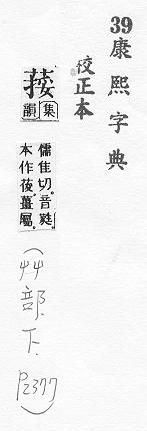 39 康熙字典
校正本
集韻
儒隹切。音甤。
本作荾。薑屬。
(艸部.下. P2377)